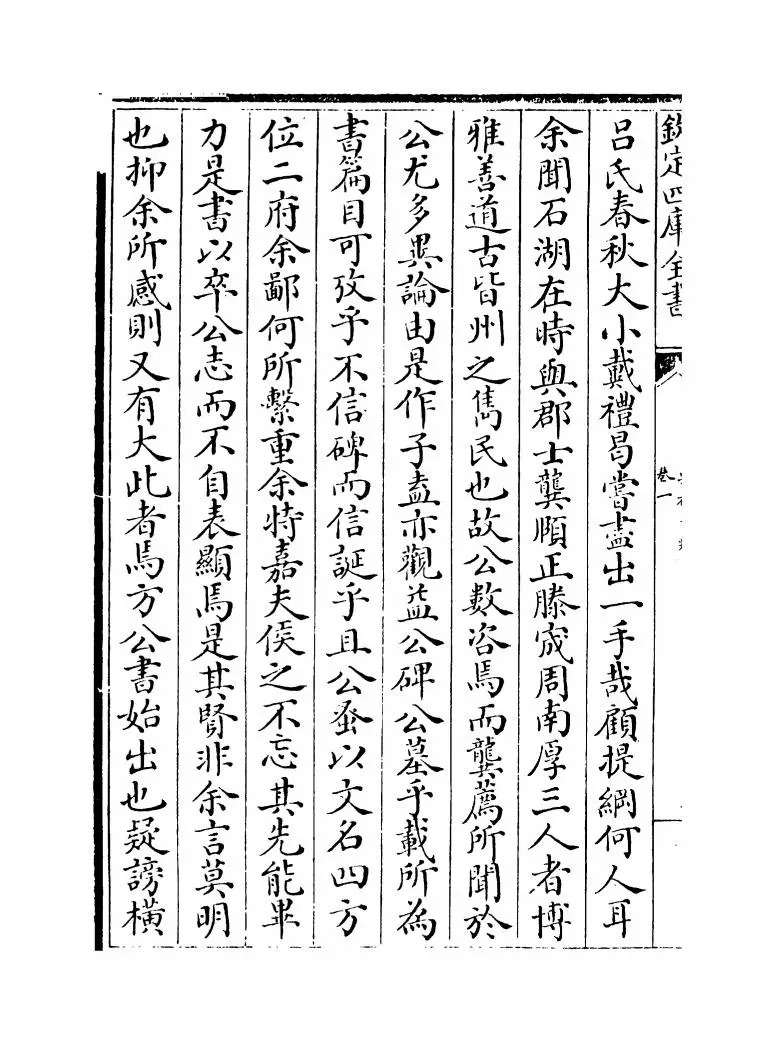 欽定四庫全書
卷一
呂氏春秋大小戴禮曷嘗盡出一手哉顧提綱何人耳
余聞石湖在時與郡士龔頤正滕宬周南厚三人者博
雅善道古皆州之雋民也故公數咨焉而龔薦所聞於
公尤多異論由是作子盍亦觀益公碑公墓乎載所為
書篇目可攷乎不信碑而信誕乎且公蚤以文名四方
位二府余鄙何所繫重余特嘉夫侯之不忘其先能畢
力是書以卒公志而不自表顯焉是其賢非余言莫明
也抑余所感則又有大此者焉方公書始出也疑謗橫